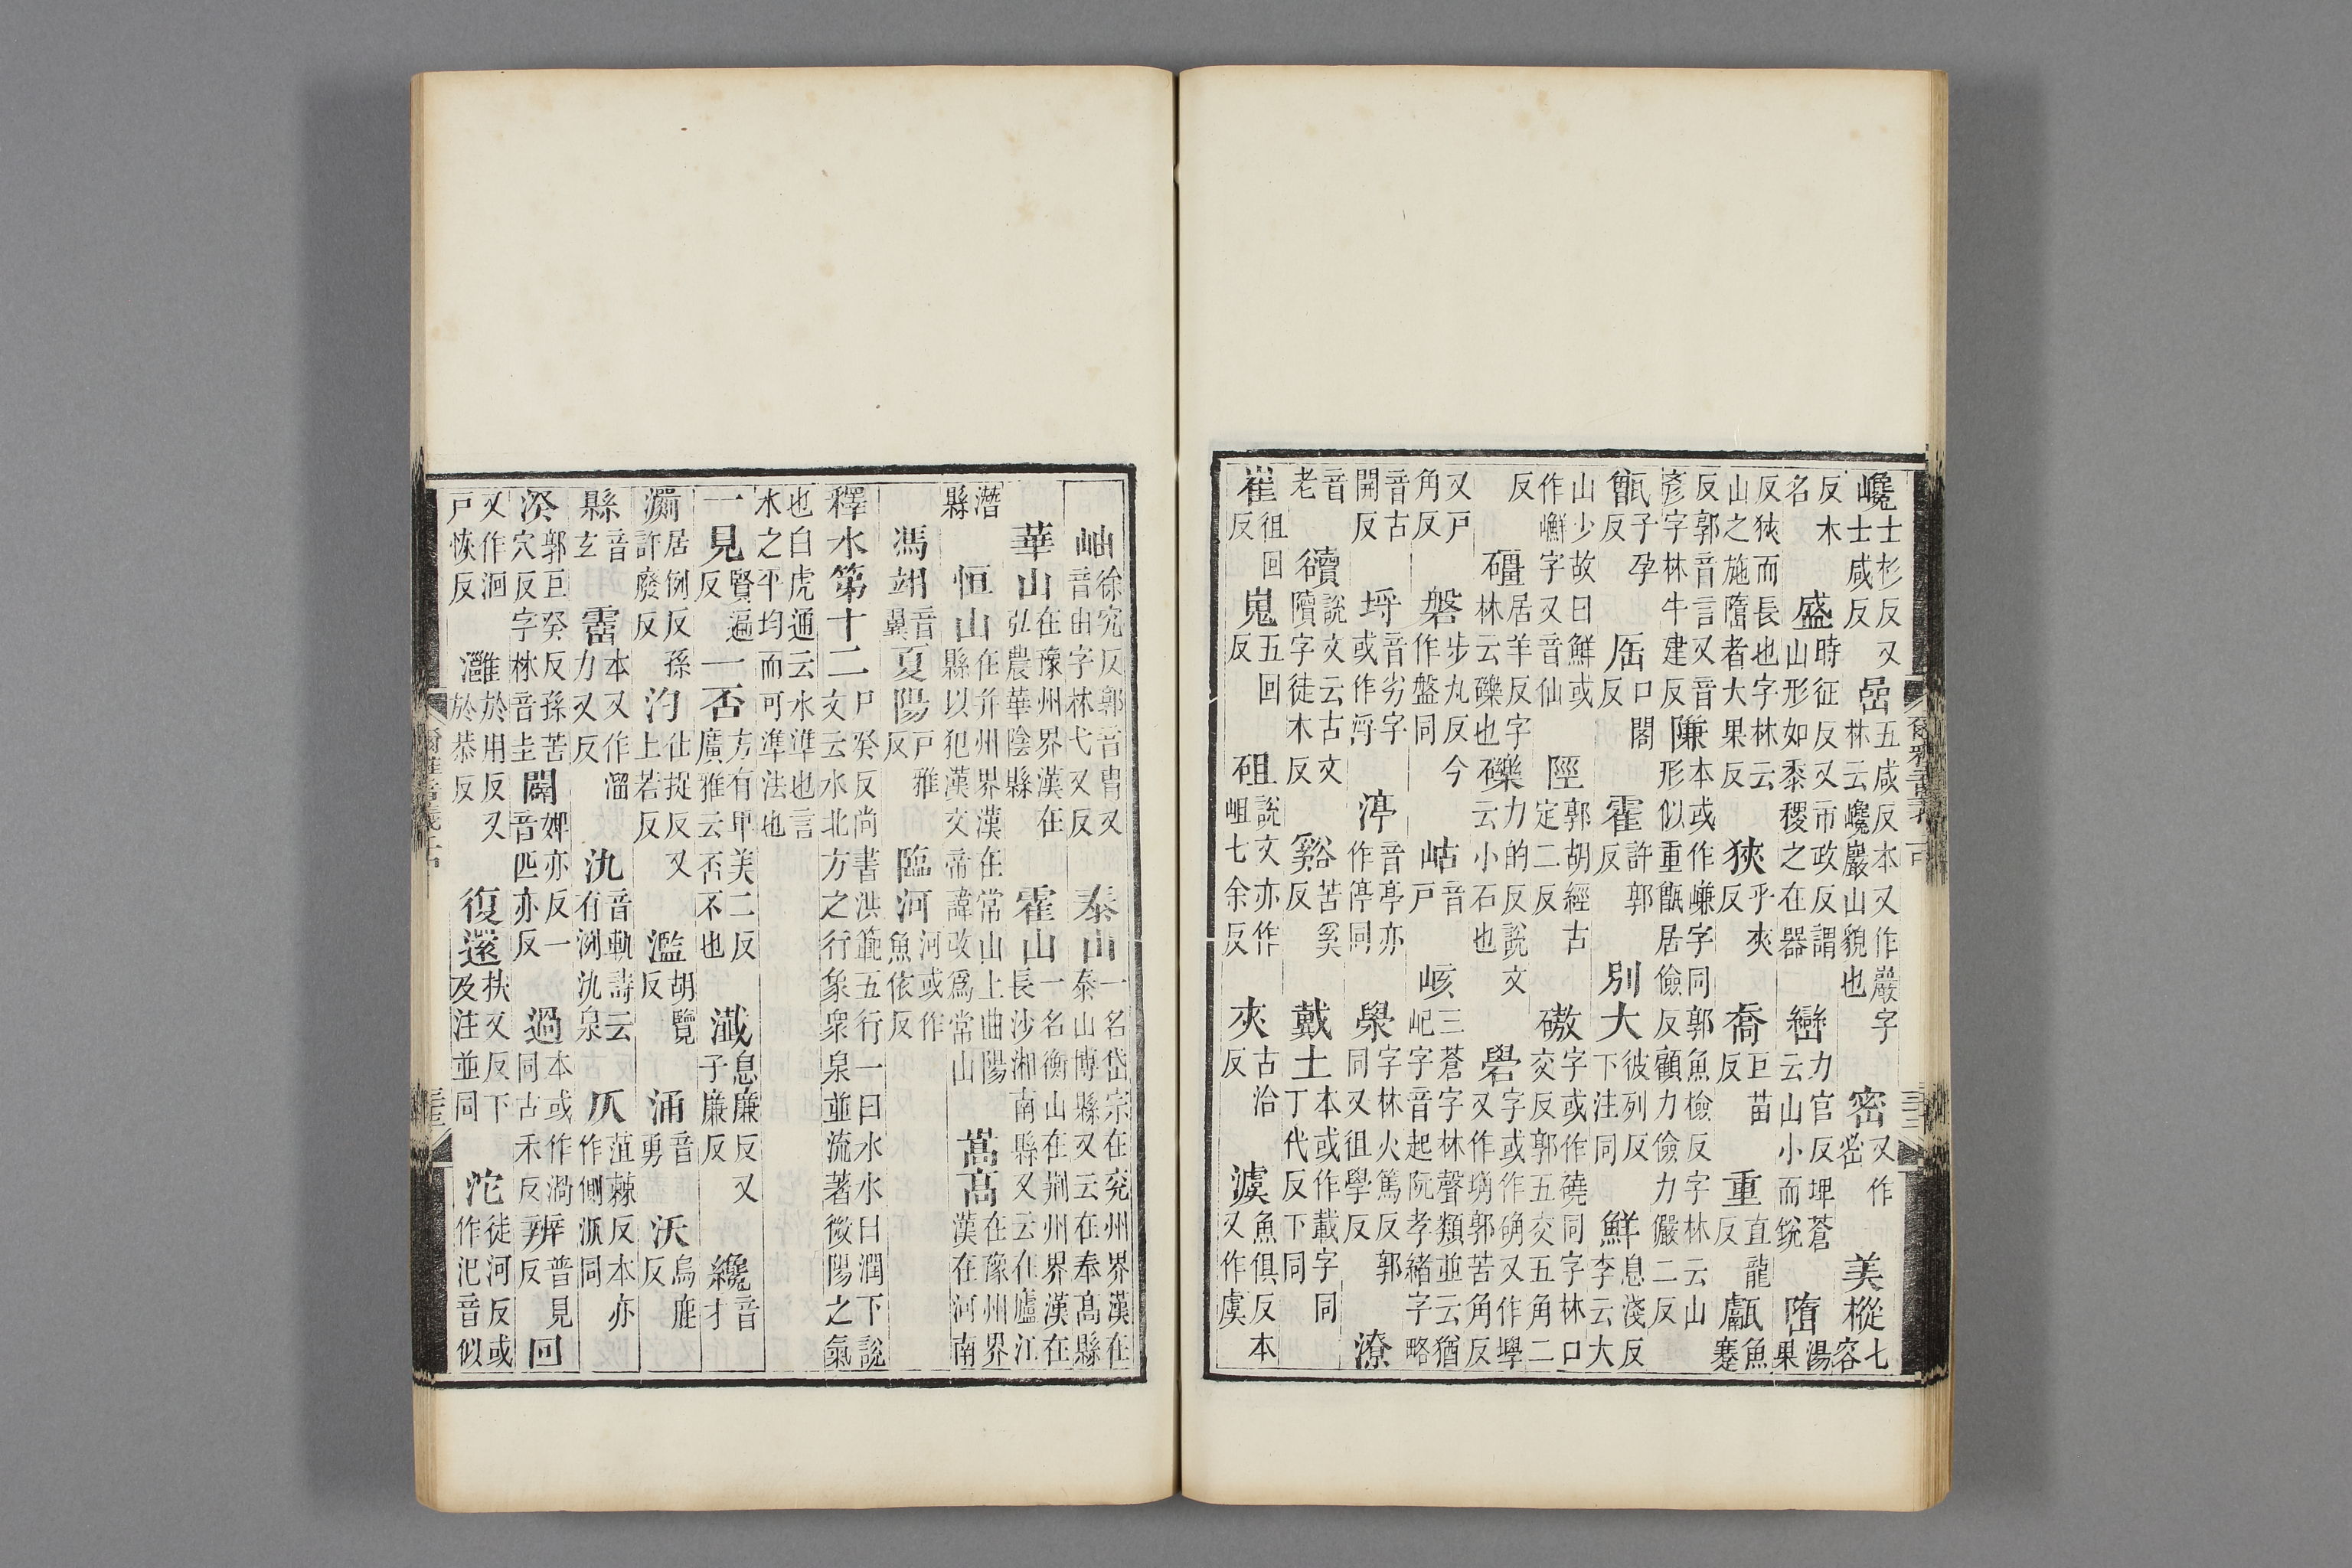 巉士杉反又士咸反嵒五咸反本又作巖字林云巉巖山貌也密又作宻美樅七容
反木名盛時征反又市政反謂山形如黍稷之在器巒力官反埤蒼云山小而銳墮湯果
反狹而長也字林云山之施墮者大果反狹乎夾反喬巨苗反重直龍反甗魚蹇
反郭音言又音彥字林牛建反隒本或作㡘字同郭魚檢反字林云山形似重甑居儉反顧力儉力儼二反
甑子孕反厒口閤反霍許郭反別大彼列反下注同鮮息淺反李云大
山少故曰鮮或作嶰字又音仙陘郭胡經古定二反磝字或作磽同字林口交反郭五交五角二
反礓居羊反字林云礫也礫力的反說文云小石也礐字或作确又作㩇又作㻡郭苦角反
又戶角反磐步九反今作盤同岵音戶峐三蒼字林聲類並云猶屺字音起阮孝緒字略
音古開反埒音劣字或作浖渟音亭亦作停同㶅字林火篤反郭同又徂學反潦
音老䜠說文云古文隫字徒木反谿苦奚反戴土本或作載字同丁代反下同
崔徂回反嵬五回反砠說文亦作岨七余反夾古洽反澞魚俱反本又作虞
岫徐究反郭音胄又音由字林弋又反泰山一名岱宗在兖州界漢在泰山博縣又云在奉高縣
華山在豫州界漢在弘農華陰縣霍山一名衡山在荆州界漢在長沙湘南縣又云在廬江
潛縣恒山在并州界漢在常山上曲陽縣以犯漢文帝諱改爲常山嵩高在豫州界漢在河南
馮翊音翼夏陽戶雅反臨河河或作魚依反
釋水第十二尸癸反尚書洪範五行一曰水水曰潤下說文云水北方之行象衆泉並流著微陽之氣
也白虎通云水準也言水之平均而可準法也
一見賢遍反一否方有甲美二反廣雅云否不也瀸息廉反又子廉反纔音才
瀱居例反孫許廢反汋仕捉反又上若反濫胡覽反涌音勇沃烏鹿反
縣音玄霤本又作溜力又反氿音軌詩云有冽氿泉仄菹棘反本亦作側派同
湀郭巨癸反孫苦穴反字林音圭闢婢亦反一音匹亦反過本或作濄同古禾反辨普見反回
又作洄戶恢反灉於用反又於恭反復還扶又反下及注並同沱徒河反或作汜音似